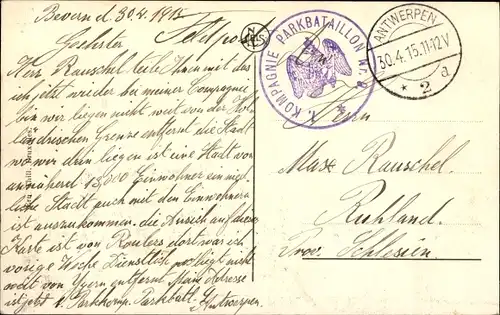 Bevern d. 30.4.1915
Geehrter
Feldpost
Herr Rauschel teile Ihnen mit das
ich jetzt wieder bei meiner Compagnie
bin wir liegen nicht weit von der Hol
ländischen Grenze entfernt die Stadt
wo wir drin liegen ist eine Stadt von
annähernd 13,000 Einwohner ein nied
liche Stadt auch mit den Einwohnern
ist auszukommen. die Ansich auf dieser
Karte ist von Roulers dort war ich
vorige Woche Dienstlich liegt nicht
weit von Ypern entfernt Meine Adresse
ist jetzt 1. Parkkomp. Parkbatl. Antwerpen.
KOMPAGNIE PARKBATAILLON Nr. 9
ANTWERPEN
30.4.15.11-12V
* 2 a
An
Herrn
Max Rauschel.
Ruhland.
Prov. Schlesien.